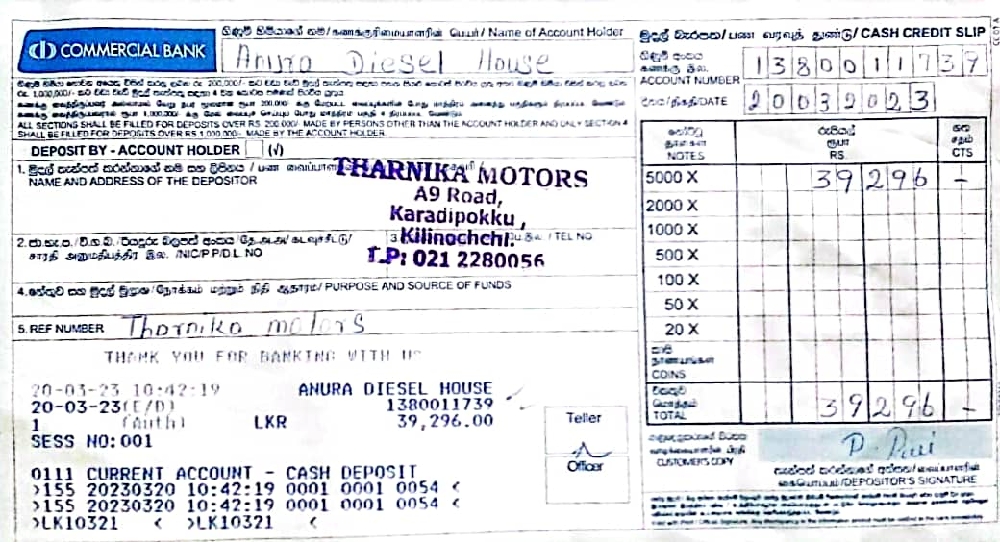 COMMERCIAL BANK
ගිණුම් හිමියාගේ නම / கணக்குரிமையாளரின் பெயர் / Name of Account Holder
Anura Diesel House
මුදල් බැරපත / பண வரவுத் துண்டு / CASH CREDIT SLIP
ගිණුම් අංකය
கணக்கு இல.
ACCOUNT NUMBER
1380011739
දිනය/திகதி/DATE
20032023
ALL SECTIONS SHALL BE FILLED FOR DEPOSITS OVER RS 200,000/- MADE BY PERSONS OTHER THAN THE ACCOUNT HOLDER AND ONLY SECTION 4
SHALL BE FILLED FOR DEPOSITS OVER RS 1,000,000/- MADE BY THE ACCOUNT HOLDER.
DEPOSIT BY - ACCOUNT HOLDER (√)
NAME AND ADDRESS OF THE DEPOSITOR
THARNIKA MOTORS
A9 Road,
Karadipokku,
Kilinochchi.
T.P: 021 2280056
2. සාරති அனுமதிப்பத்திர இல. /NIC/PP/D.L NO
3. TEL NO
4. හේතුව සහ මුදල් මූලාශ්‍ර / நோக்கம் மற்றும் நிதி ஆதாரம் / PURPOSE AND SOURCE OF FUNDS
5. REF NUMBER Tharnika motors
THANK YOU FOR BANKING WITH US
20-03-23 10:42:19 ANURA DIESEL HOUSE
20-03-23(E/D) 1380011739
1 (Auth) LKR 39,296.00
SESS NO:001
0111 CURRENT ACCOUNT - CASH DEPOSIT
>155 20230320 10:42:19 0001 0001 0054 <
>155 20230320 10:42:19 0001 0001 0054 <
>LK10321 < >LK10321 <
Teller
Officer
නෝට්டු
தாள்கள்
NOTES
රුපියල්
ரூபா
RS.
ශත
சதம்
CTS
5000 X 39296 -
2000 X
1000 X
500 X
100 X
50 X
20 X
කාසි
நாணயங்கள்
COINS
එකතුව
மொத்தம்
TOTAL
39296 -
CUSTOMER'S COPY
கையொப்பம்/DEPOSITOR'S SIGNATURE